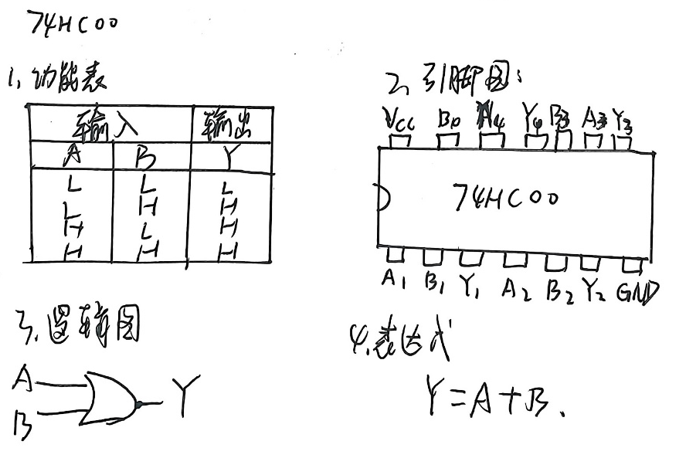 74HC00
1、功能表
输入 输出
A B Y
L L L
L H H
H L H
H H H
2、引脚图：
Vcc B4 A4 Y4 B3 A3 Y3
74HC00
A1 B1 Y1 A2 B2 Y2 GND
3、逻辑图
A
B
Y
4、表达式
Y=A+B.